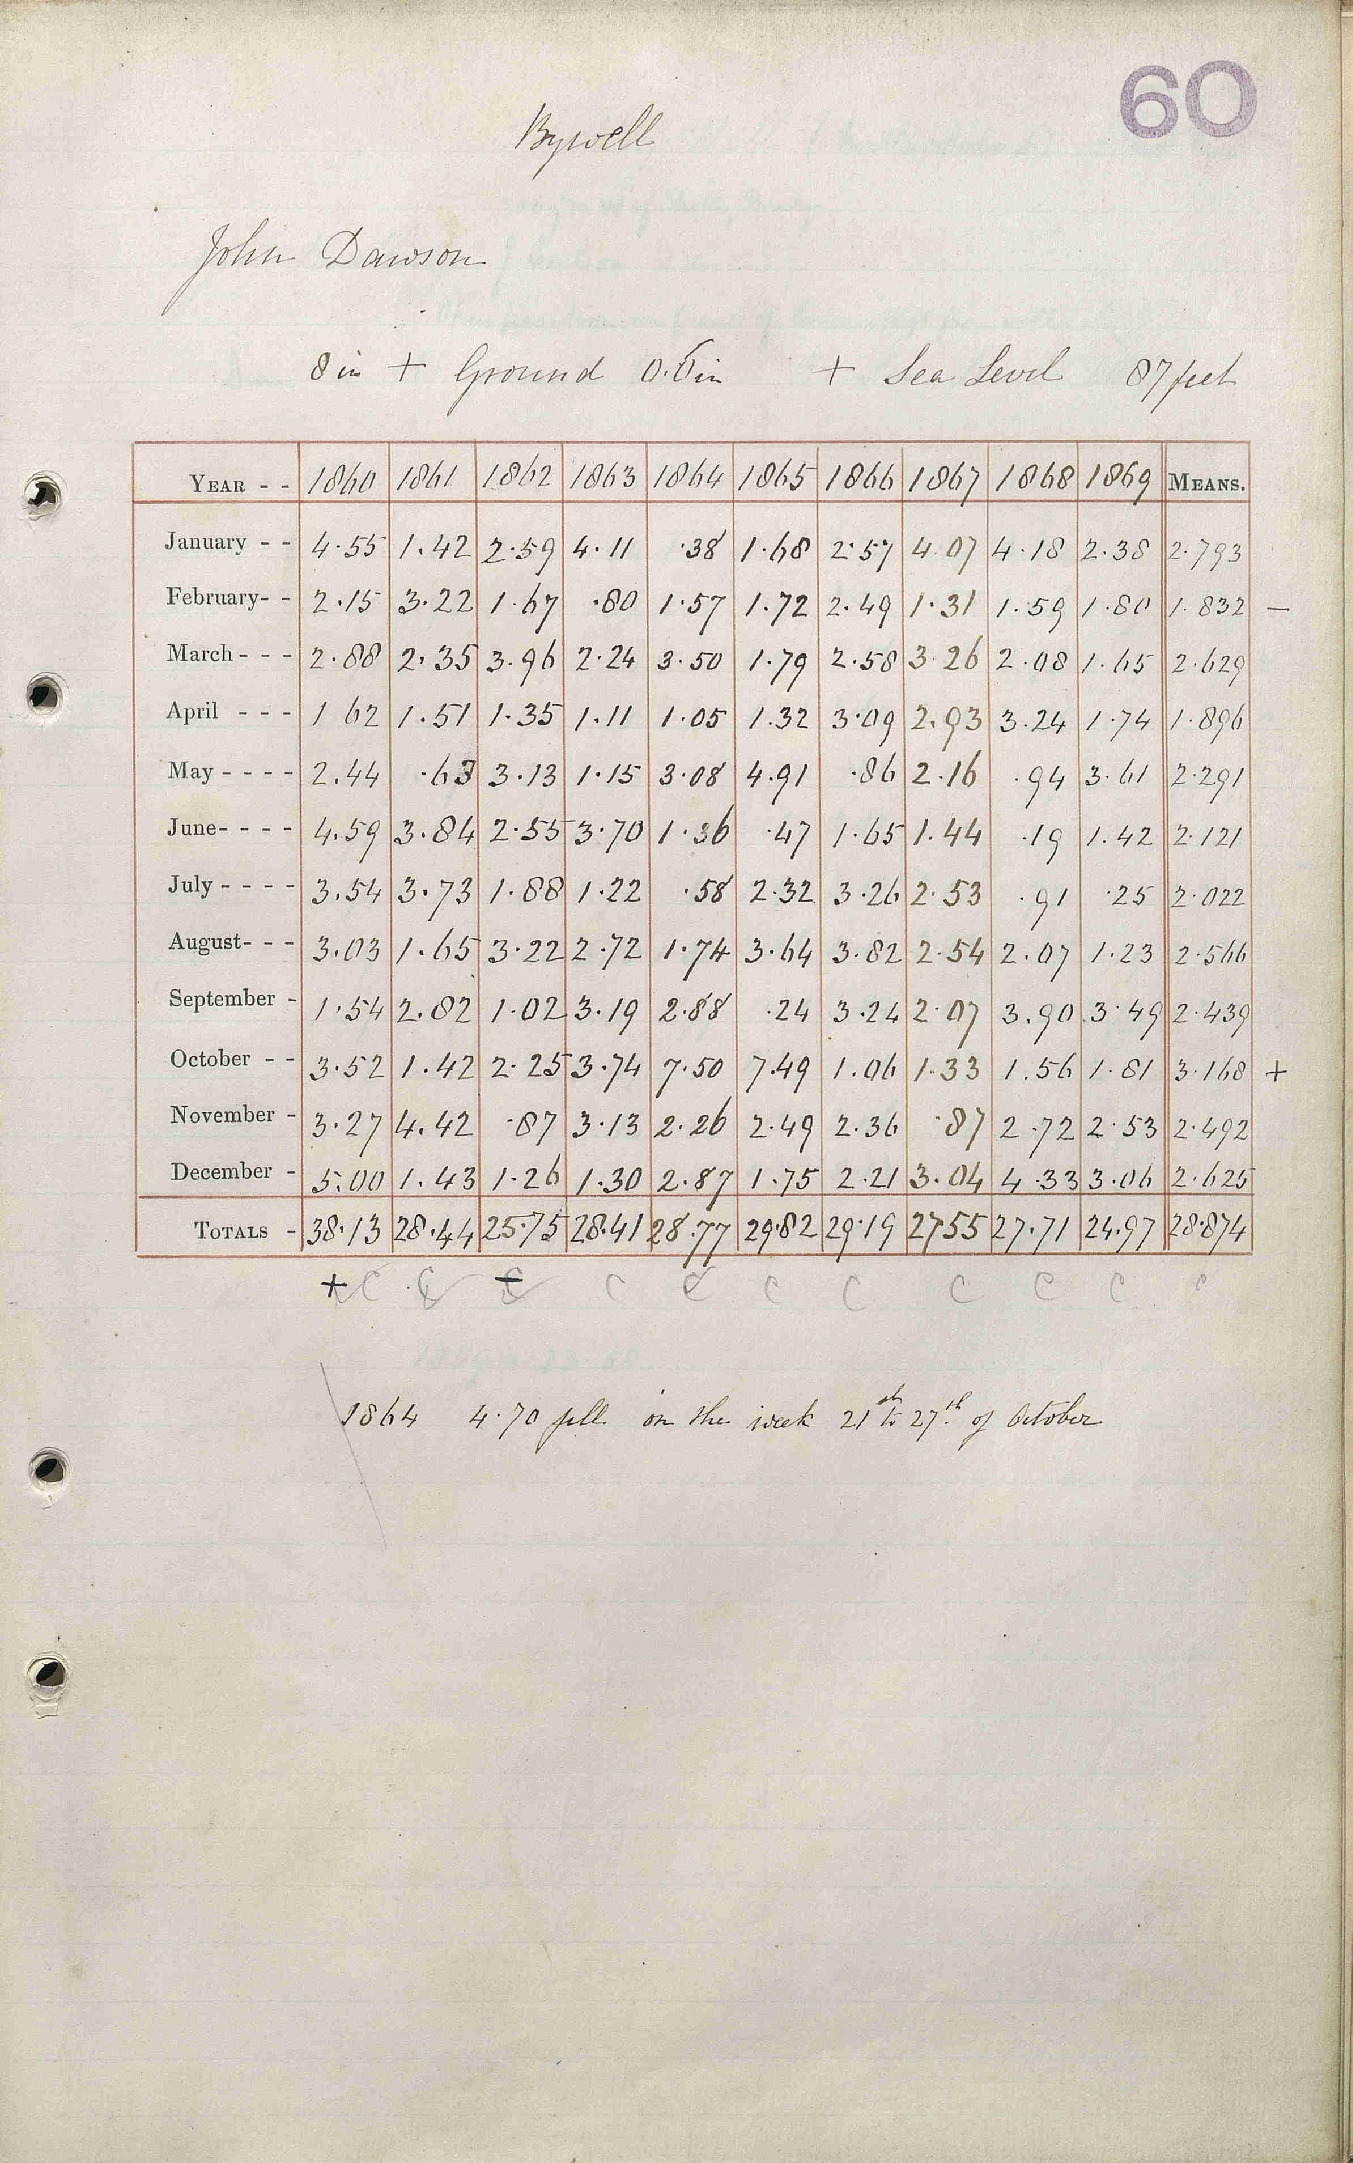 60
Bywell
John Dawson
8 in + Ground 0.6 in + Sea Level 87 feet
YEAR - - 1860 1861 1862 1863 1864 1865 1866 1867 1868 1869 MEANS.
January - - 4.55 1.42 2.59 4.11 .38 1.68 2.57 4.07 4.18 2.38 2.793
February- - 2.15 3.22 1.67 .80 1.57 1.72 2.49 1.31 1.59 1.80 1.832 —
March - - - 2.88 2.35 3.96 2.24 3.50 1.79 2.58 3.26 2.08 1.65 2.629
April - - - 1 62 1.51 1.35 1.11 1.05 1.32 3.09 2.93 3.24 1.74 1.896
May - - - - 2.44 .63 3.13 1.15 3.08 4.91 .86 2.16 .94 3.61 2.291
June- - - - 4.59 3.84 2.55 3.70 1.36 .47 1.65 1.44 .19 1.42 2.121
July - - - - 3.54 3.73 1.88 1.22 .58 2.32 3.26 2.53 .91 .25 2.022
August- - - 3.03 1.65 3.22 2.72 1.74 3.64 3.82 2.54 2.07 1.23 2.566
September - 1.54 2.82 1.02 3.19 2.88 .24 3.24 2.07 3.90 3.49 2.439
October - - 3.52 1.42 2.25 3.74 7.50 7.49 1.06 1.33 1.56 1.81 3.168 +
November - 3.27 4.42 .87 3.13 2.26 2.49 2.36 .87 2.72 2.53 2.492
December - 5.00 1.43 1.26 1.30 2.87 1.75 2.21 3.04 4.33 3.06 2.625
TOTALS - 38.13 28.44 25.75 28.41 28.77 29.82 29.19 2755 27.71 24.97 28.874
+ C C + C C C C C C C C C
1864 4.70 fell in the week 21st to 27th of October